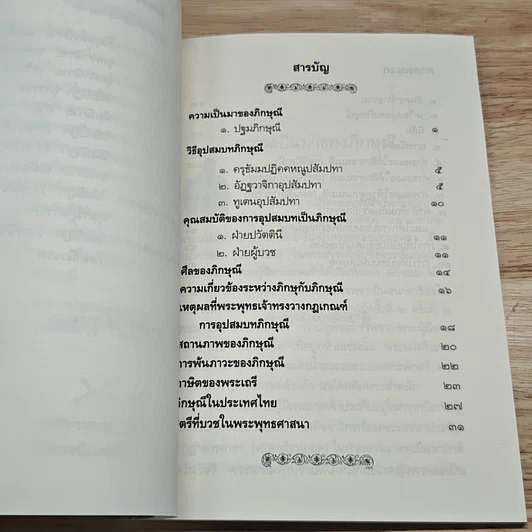 สารบัญ
ความเป็นมาของภิกษุณี
๑. ปฐมภิกษุณี ๑
วิธีอุปสมบทภิกษุณี
๑. ครุธัมมปฏิคคหณูปสัมปทา ๕
๒. อัฏฐวาจิกาอุปสัมปทา ๕
๓. ทูเตนอุปสัมปทา ๑๐
คุณสมบัติของการอุปสมบทเป็นภิกษุณี
๑. ฝ่ายปวัตตินี ๑๑
๒. ฝ่ายผู้บวช ๑๑
ศีลของภิกษุณี ๑๔
ความเกี่ยวข้องระหว่างภิกษุกับภิกษุณี ๑๖
เหตุผลที่พระพุทธเจ้าทรงวางกฎเกณฑ์
การอุปสมบทภิกษุณี ๑๘
สถานภาพของภิกษุณี ๒๐
การพ้นภาวะของภิกษุณี ๒๒
ภาษิตของพระเถรี ๒๓
ภิกษุณีในประเทศไทย ๒๗
ตรีที่บวชในพระพุทธศาสนา ๓๑